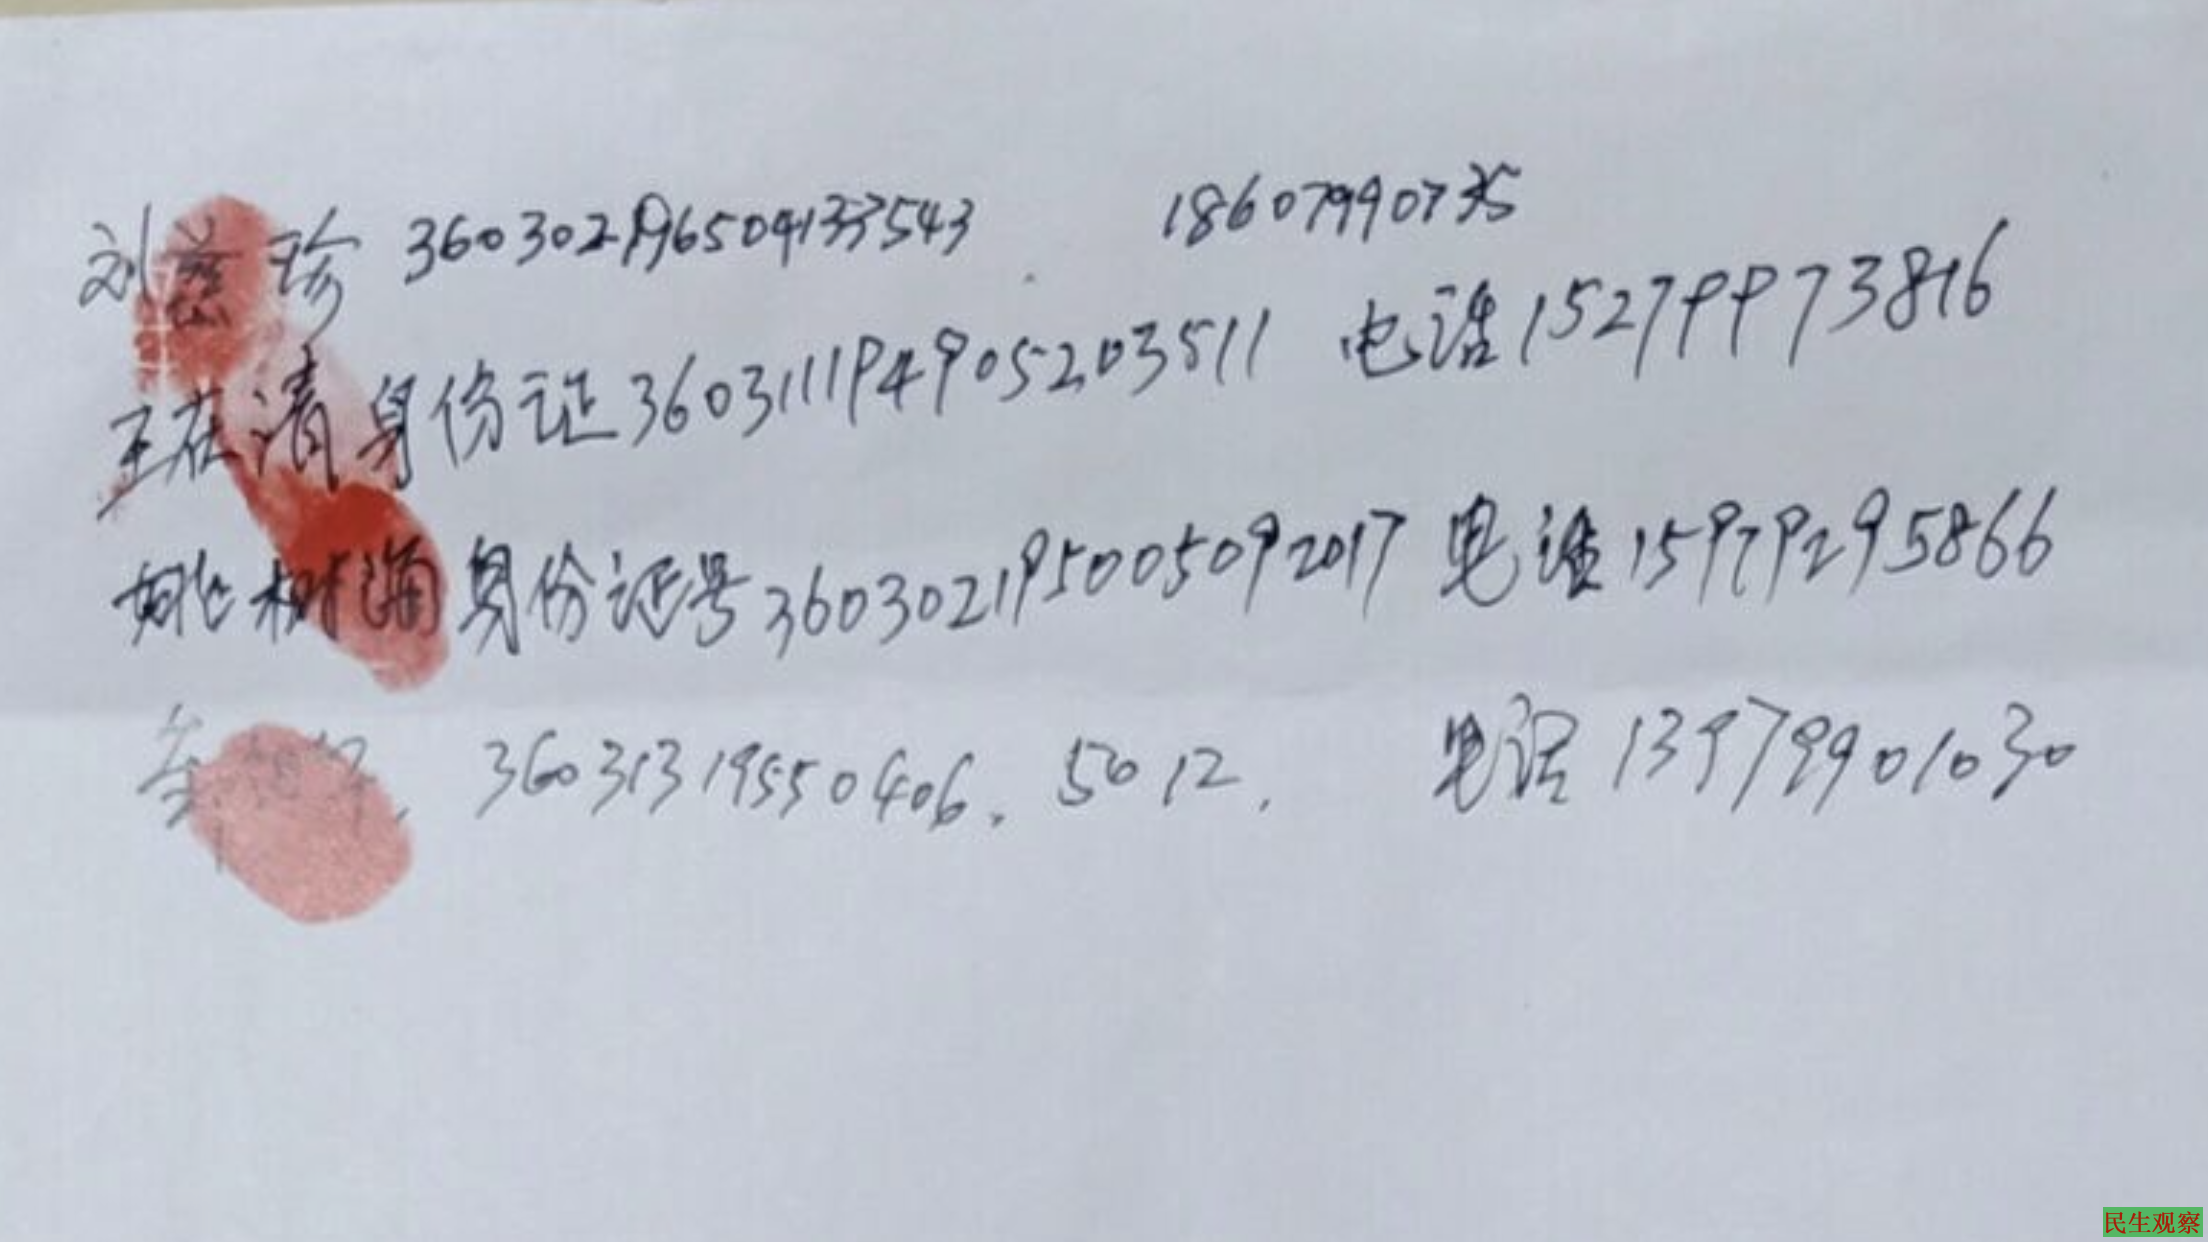 刘慈珍 360302196504133543 18607990735
王在清身份证360311194905203511 电话15279973816
姚树 身份证号360302195005092017 电话15979295866
36031319550406. 5012. 电话13979901030
民生观察